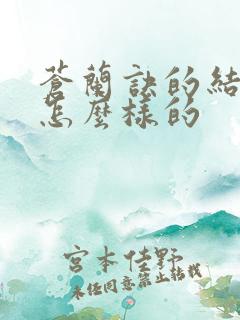 蒼蘭訣的結
怎麼樣的
宮本佳野
未經同意禁止轉載